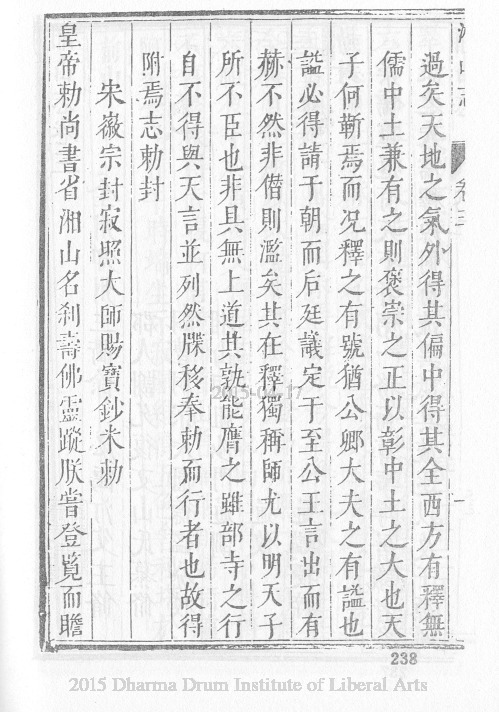 湘山志 卷三
過矣天地之氣外得其偏中得其全西方有釋無
儒中土兼有之則褒崇之正以彰中土之大也天
子何靳焉而況釋之有號猶公卿大夫之有謚也
謚必得請于朝而后廷議定于至公王言出而有
赫不然非僭則濫矣其在釋獨稱師尤以明天子
所不臣也非具無上道其孰能膺之雖部寺之行
自不得與天言並列然牒移奉勅而行者也故得
附焉志勅封
宋徽宗封寂照大師賜寶鈔米勅
皇帝勅尚書省湘山名刹壽佛靈蹤朕嘗登覽而瞻
2015.02.17
238
2015 Dharma Drum Institute of Liberal Arts